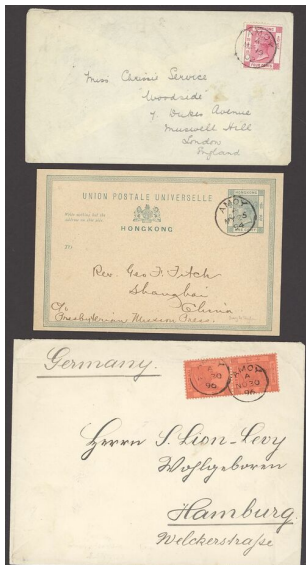 Miss Chrissie Service
"Woodside"
7 Dukes Avenue
Muswell Hill
London
England
FOUR CENTS
UNION POSTALE UNIVERSELLE
HONGKONG
To
AMOY
A
Rev. Geo. F. Fitch
Shanghai
China
c/o
Presbyterian Mission Press.
Germany.
AMOY
A
NO 30
96
Herrn S. Lion-Levy
Wohlgeboren
Hamburg.
Welckerstraße